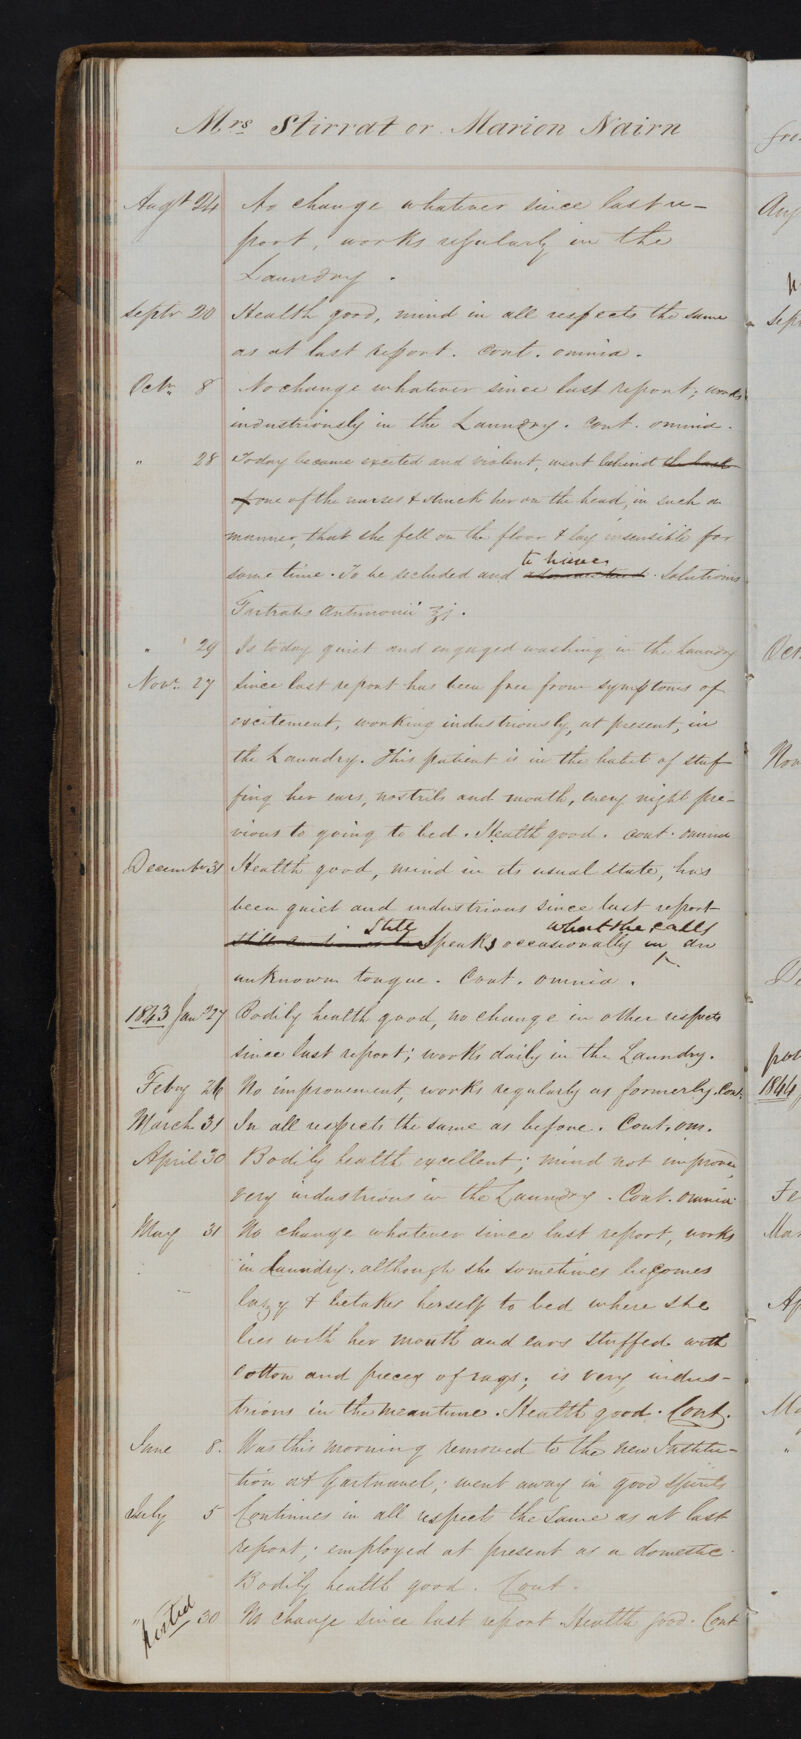 Mrs Stirrat or Marion Nairn
Augt 24 No change whatever since last re-
port, works regularly in the
Laundry.
Septr 20 Health good, mind in all respects the same
as at last report. Cont. omnia.
Octr 8 No change whatever since last report; works
industriously in the Laundry. Cont. omnia.
" 28 Today became excited and violent, went behind the back
of one of the nurses & struck her on the head, in such a
manner, that she fell on the floor & lay insensible for
to have
some time. To be secluded and Solutionis
Tartratis Antimonii ʒj.
" 29 Is today quiet and engaged washing in the Laundry
Novr. 27 Since last report has been free from symptoms of
excitement, working industriously, at present, in
the Laundry. This patient is in the habit of stuf-
fing her ears, nostrils and mouth, every night pre-
vious to going to bed. Health good. Cont. omnia
December 31 Health good, mind in its usual state, has
been quiet and industrious since last report
Still what she calls
speaks occasionally in an
unknown tongue. Cont. omnia.
1843 Jany 27 Bodily health good, no change in other respects
since last report; works daily in the Laundry.
Feby 26 No improvement, works regularly as formerly. Cont.
March 31 In all respects the same as before. Cont. om.
April 30 Bodily health excellent; mind not improved,
very industrious in the Laundry. Cont. omnia
May 31 No change whatever since last report, works
in Laundry. although she sometimes becomes
lazy & betakes herself to bed where she
lies with her mouth and ears stuffed with
cotton and pieces of rags; is very indus-
trious in the meantime. Health good. Cont.
June 8. Was this morning removed to the new Institu-
tion at Gartnavel; went away in good spirits
July 5 Continues in all respects the same as at last
report; employed at present as a domestic.
Bodily health good. Cont.
" 30 No change since last report. Health good. Cont
posted
1844